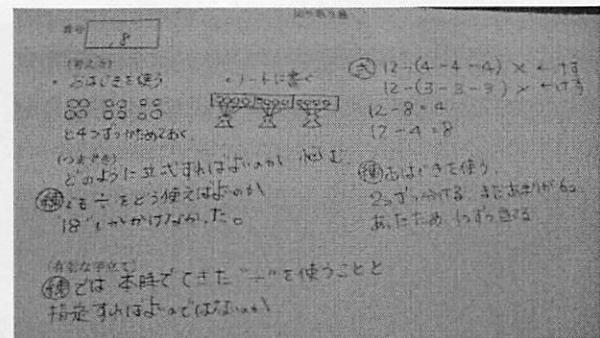 番号
8
(考え方)
・おはじきを使う
と4つずつかためておく。
・ノートに書く
(つまずき)
どのように立式すればよいのか 悩む。
練 も ÷ をどう使えばよいのか
18 かけなかった。
(有効な手立て)
練では 本時でてきた "÷" を使うことと
指定すればよいのではないか
式 12-(4-4-4) × ←けす
12-(3-3-3) × ←けす
12-8=4
12-4=8
練 おはじきを使う。
2つずつ分ける まだあまりが6つ
あったため 1つずつ